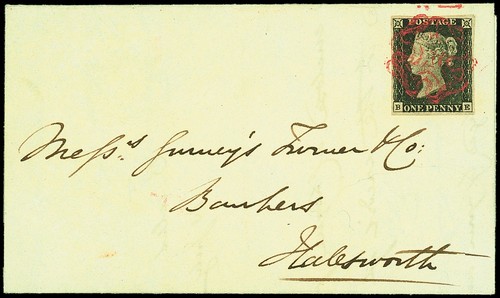 POSTAGE
B E
ONE PENNY
Messrs Gurney's Turner & Co:
Bankers
Halesworth